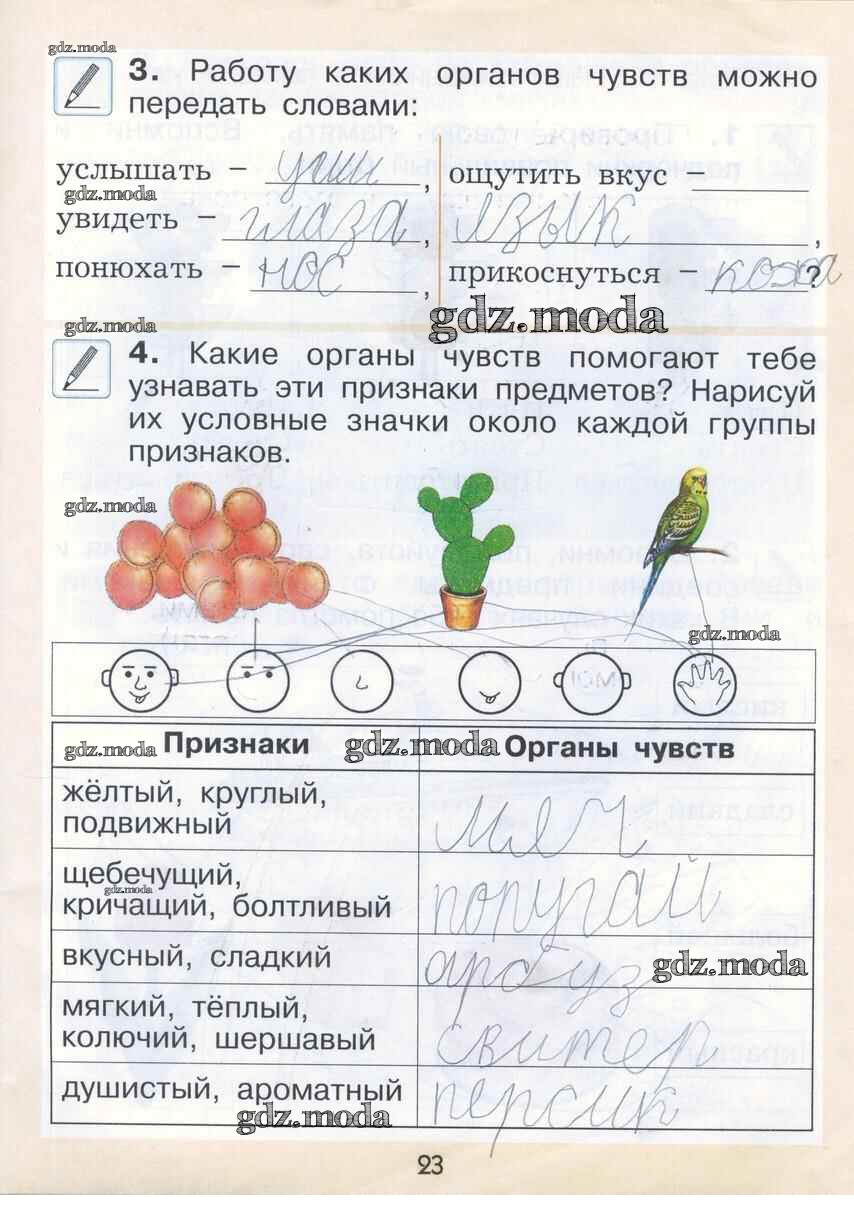 gdz.moda
3. Работу каких органов чувств можно
передать словами:
услышать – уши, ощутить вкус
gdz.moda
увидеть – глаза, язык,
понюхать – нос, прикоснуться – кожа?
gdz.moda
gdz.moda
4. Какие органы чувств помогают тебе
узнавать эти признаки предметов? Нарисуй
их условные значки около каждой группы
признаков.
gdz.moda
gdz.moda
gdz.moda Признаки gdz.moda Органы чувств
жёлтый, круглый,
подвижный
мяч
щебечущий,
gdz.moda
кричащий, болтливый
попугай
вкусный, сладкий
арбуз gdz.moda
мягкий, тёплый,
колючий, шершавый
свитер
душистый, ароматный
персик
gdz.moda
23